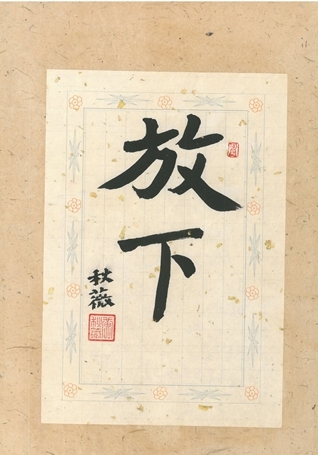 放下
秋薇